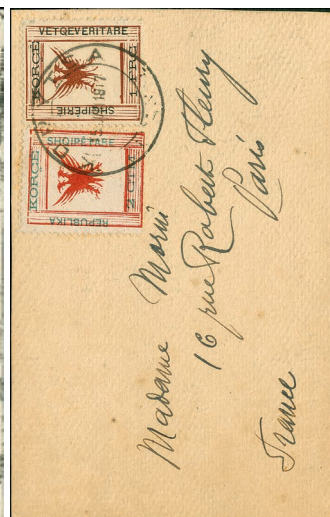 VETQEVERITARE
KORCË
1 LEPRE
SHQIPERIE
SHQIPETARE
KORCË
2 CTM
REPUBLIKA
1917
Madame Morin
16 rue Robert Fleury
Paris
France